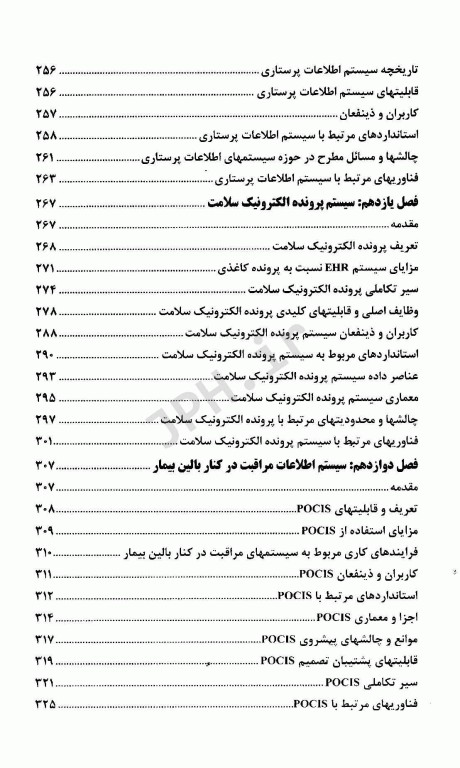 تاریخچه سیستم اطلاعات پرستاری ........ ۲۵۶
قابلیتهای سیستم اطلاعات پرستاری ........ ۲۵۶
کاربران و ذینفعان ........ ۲۵۷
استانداردهای مرتبط با سیستم اطلاعات پرستاری ........ ۲۵۸
چالشها و مسائل مطرح در حوزه سیستمهای اطلاعات پرستاری ........ ۲۶۱
فناوریهای مرتبط با سیستم اطلاعات پرستاری ........ ۲۶۳
فصل یازدهم: سیستم پرونده الکترونیک سلامت ........ ۲۶۷
مقدمه ........ ۲۶۷
تعریف پرونده الکترونیک سلامت ........ ۲۶۸
مزایای سیستم EHR نسبت به پرونده کاغذی ........ ۲۷۱
سیر تکاملی پرونده الکترونیک سلامت ........ ۲۷۴
وظایف اصلی و قابلیتهای کلیدی پرونده الکترونیک سلامت ........ ۲۷۸
کاربران و ذینفعان سیستم پرونده الکترونیک سلامت ........ ۲۸۸
استانداردهای مربوط به سیستم پرونده الکترونیک سلامت ........ ۲۹۰
عناصر داده سیستم پرونده الکترونیک سلامت ........ ۲۹۳
معماری سیستم پرونده الکترونیک سلامت ........ ۲۹۵
چالشها و محدودیتهای مرتبط با پرونده الکترونیک سلامت ........ ۲۹۷
فناوریهای مرتبط با سیستم پرونده الکترونیک سلامت ........ ۳۰۱
فصل دوازدهم: سیستم اطلاعات مراقبت در کنار بالین بیمار ........ ۳۰۷
مقدمه ........ ۳۰۷
تعریف و قابلیتهای POCIS ........ ۳۰۸
مزایای استفاده از POCIS ........ ۳۰۹
فرایندهای کاری مربوط به سیستمهای مراقبت در کنار بالین بیمار ........ ۳۱۰
کاربران و ذینفعان POCIS ........ ۳۱۱
استانداردهای مرتبط با POCIS ........ ۳۱۲
اجزا و معماری POCIS ........ ۳۱۴
موانع و چالشهای پیشروی POCIS ........ ۳۱۷
قابلیتهای پشتیبان تصمیم POCIS ........ ۳۱۹
سیر تکاملی POCIS ........ ۳۲۱
فناوریهای مرتبط با POCIS ........ ۳۲۵
JPH.ir